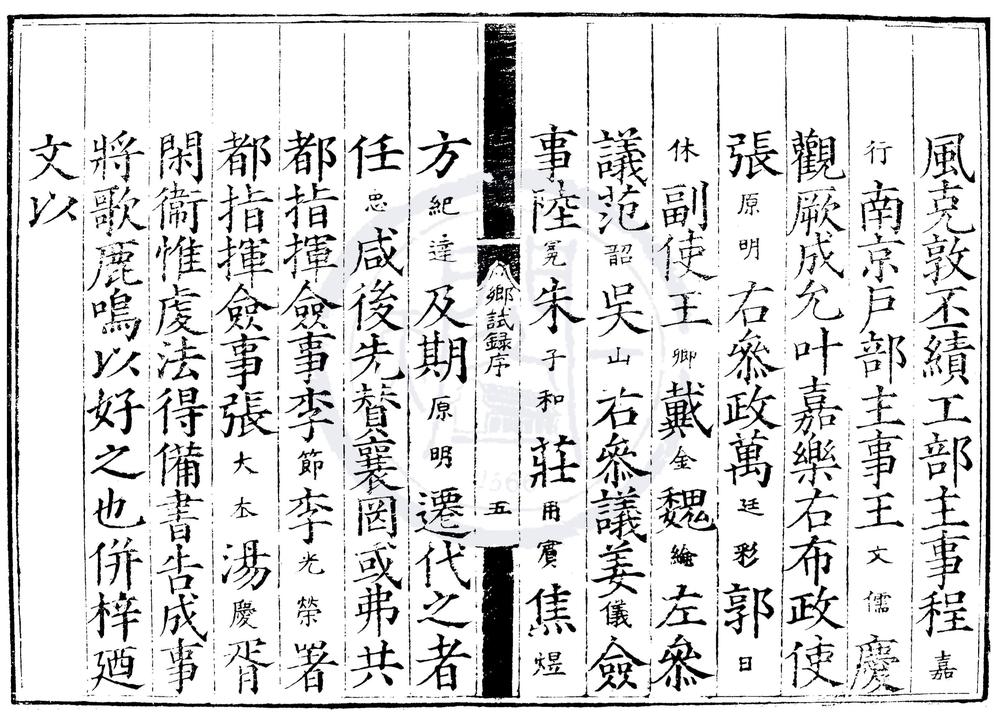 風克敦丕績工部主事程嘉
行南京戶部主事王文儒慶
觀厥成允叶嘉樂右布政使
張原明右叅政萬廷彩郭日
休副使王卿戴金魏綸左叅
議范韶吳山右叅議姜儀僉
事陸冕朱子和莊用賓焦煜
鄉試録序
五
方紀達及期原明遷代之者
任忠咸後先賛襄罔或弗共
都指揮僉事李節李光榮署
都指揮僉事張大本湯慶胥
閑衞惟虔法得備書告成事
將歌鹿鳴以好之也併梓廼
文以